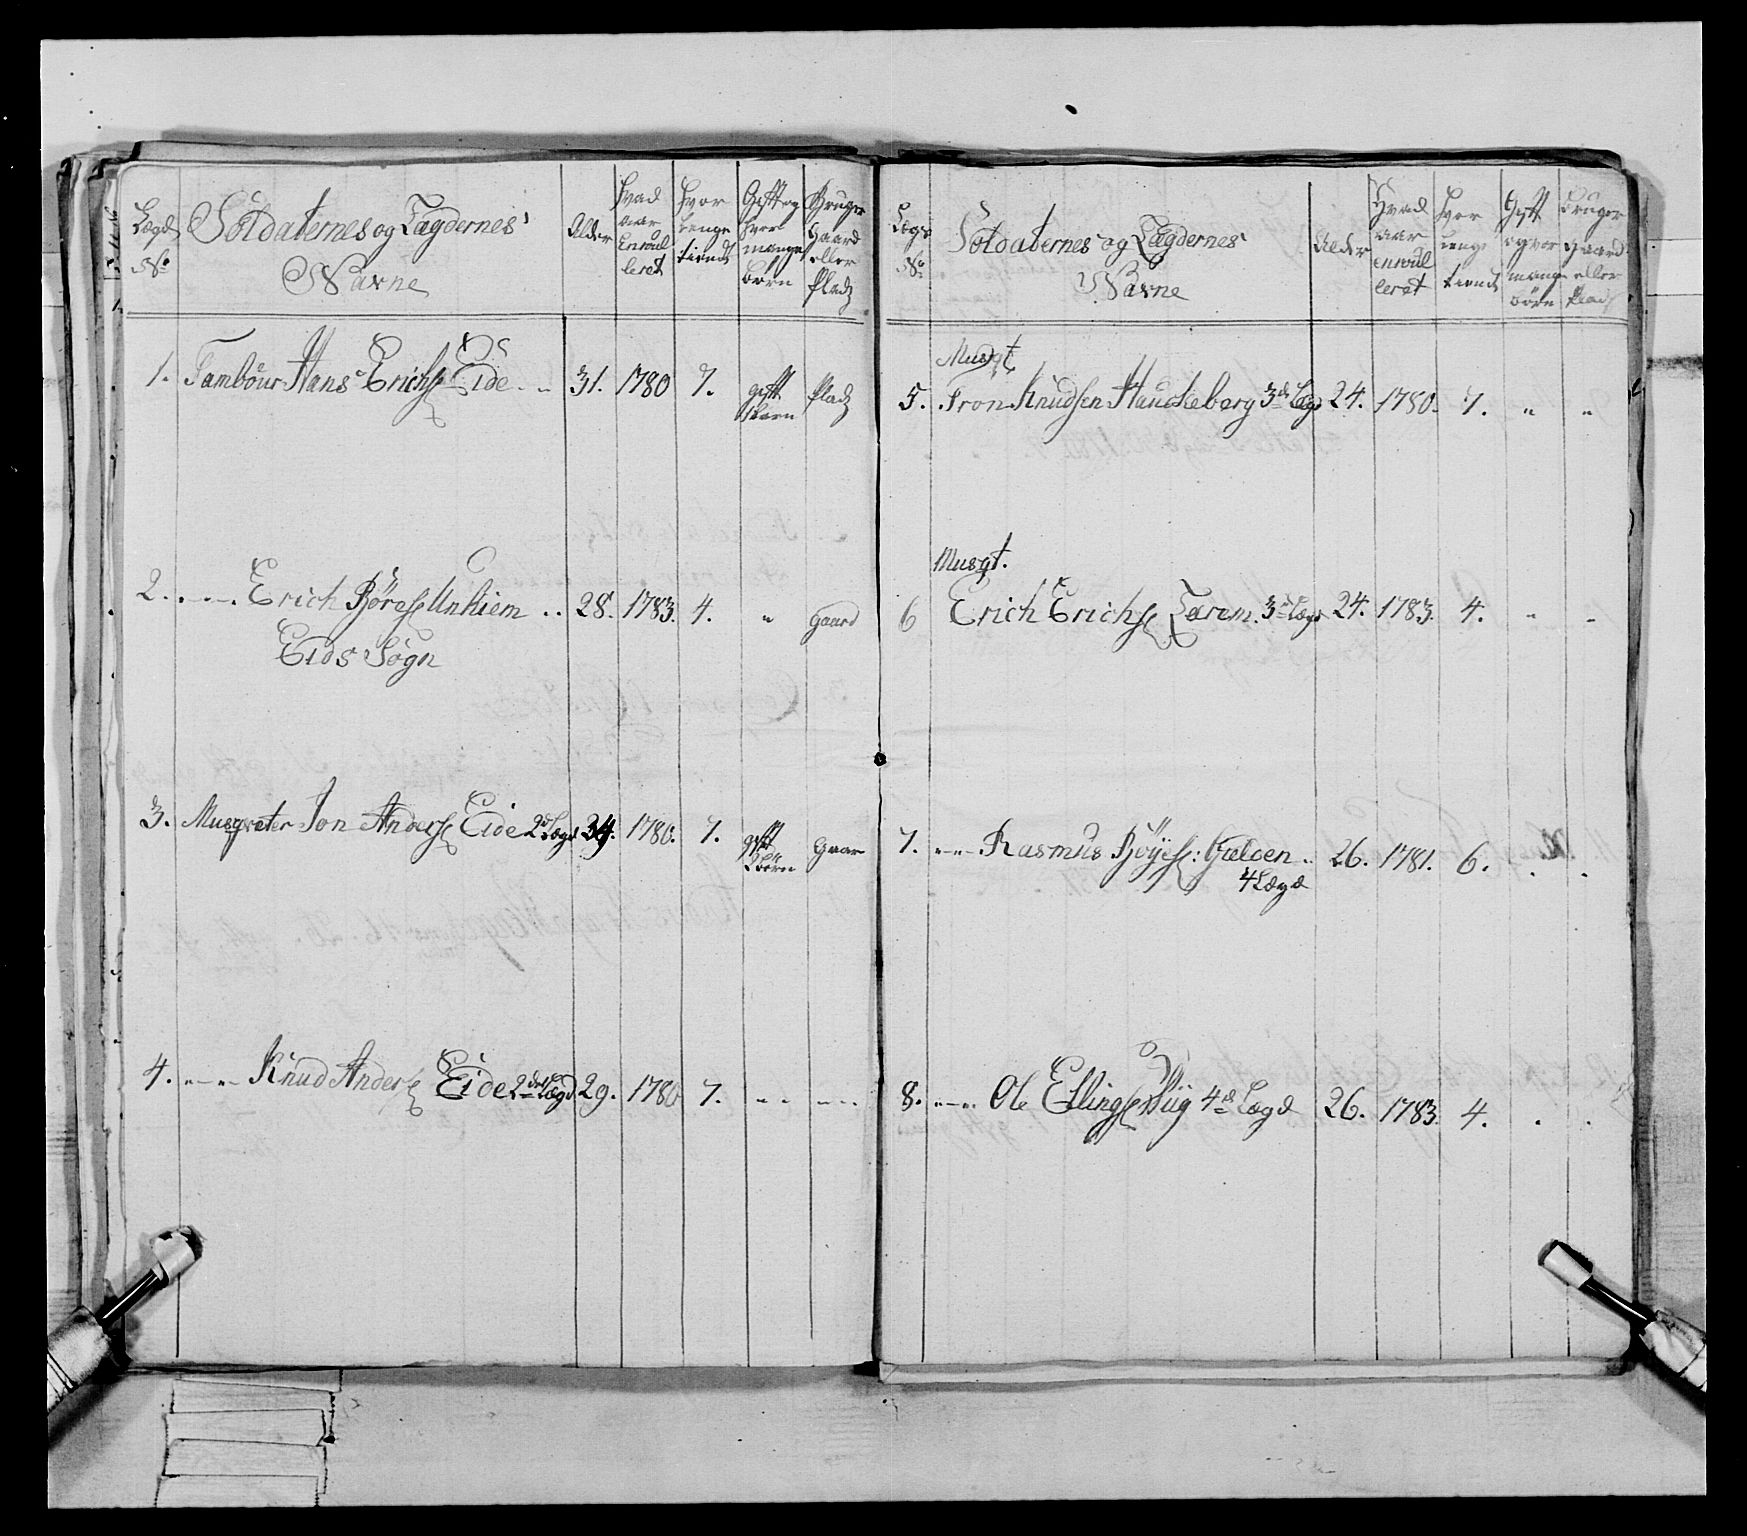 Lægd No | Soldaternes og Lægdernes Navne | Alder | Hvad aar Enroulleret | Hvor lenge tient | Gift og hvor mange børn | Bruger gaard eller Pladz
1. Tambour Hans Erichs: Eide 31. 1780 7. gift 1 barn Pladz
2. " Erich Børes: Unhiem 28. 1783. 4. " gaard
Eids Sogn
3. Musqveter Jon Anders: Eide 2d Lægd 34. 1780. 7. gift 2 børn Gaar
4. " Knud Anders: Eide 2den Lægd 29. 1780 7. " "
Lægd No | Soldaternes og Lægdernes Navne | Alder | Hvad aar Enroulleret | Hvor lenge tient | Gift og vor mange børn | Bruger gaard eller Plads
Musqt
5. Tron Knudsen Hauckeberg 3de Læg 24. 1780. 7. " "
Musqt.
6 Erich Erichs: Lærem. 3de Lægd 24. 1783. 4. " "
7. " Rasmus Bøyes: Gielden 26. 1781. 6. . .
4 Lægd
8. " Ole Ellings: Viig 4de Lægd 26. 1783. 4. . .